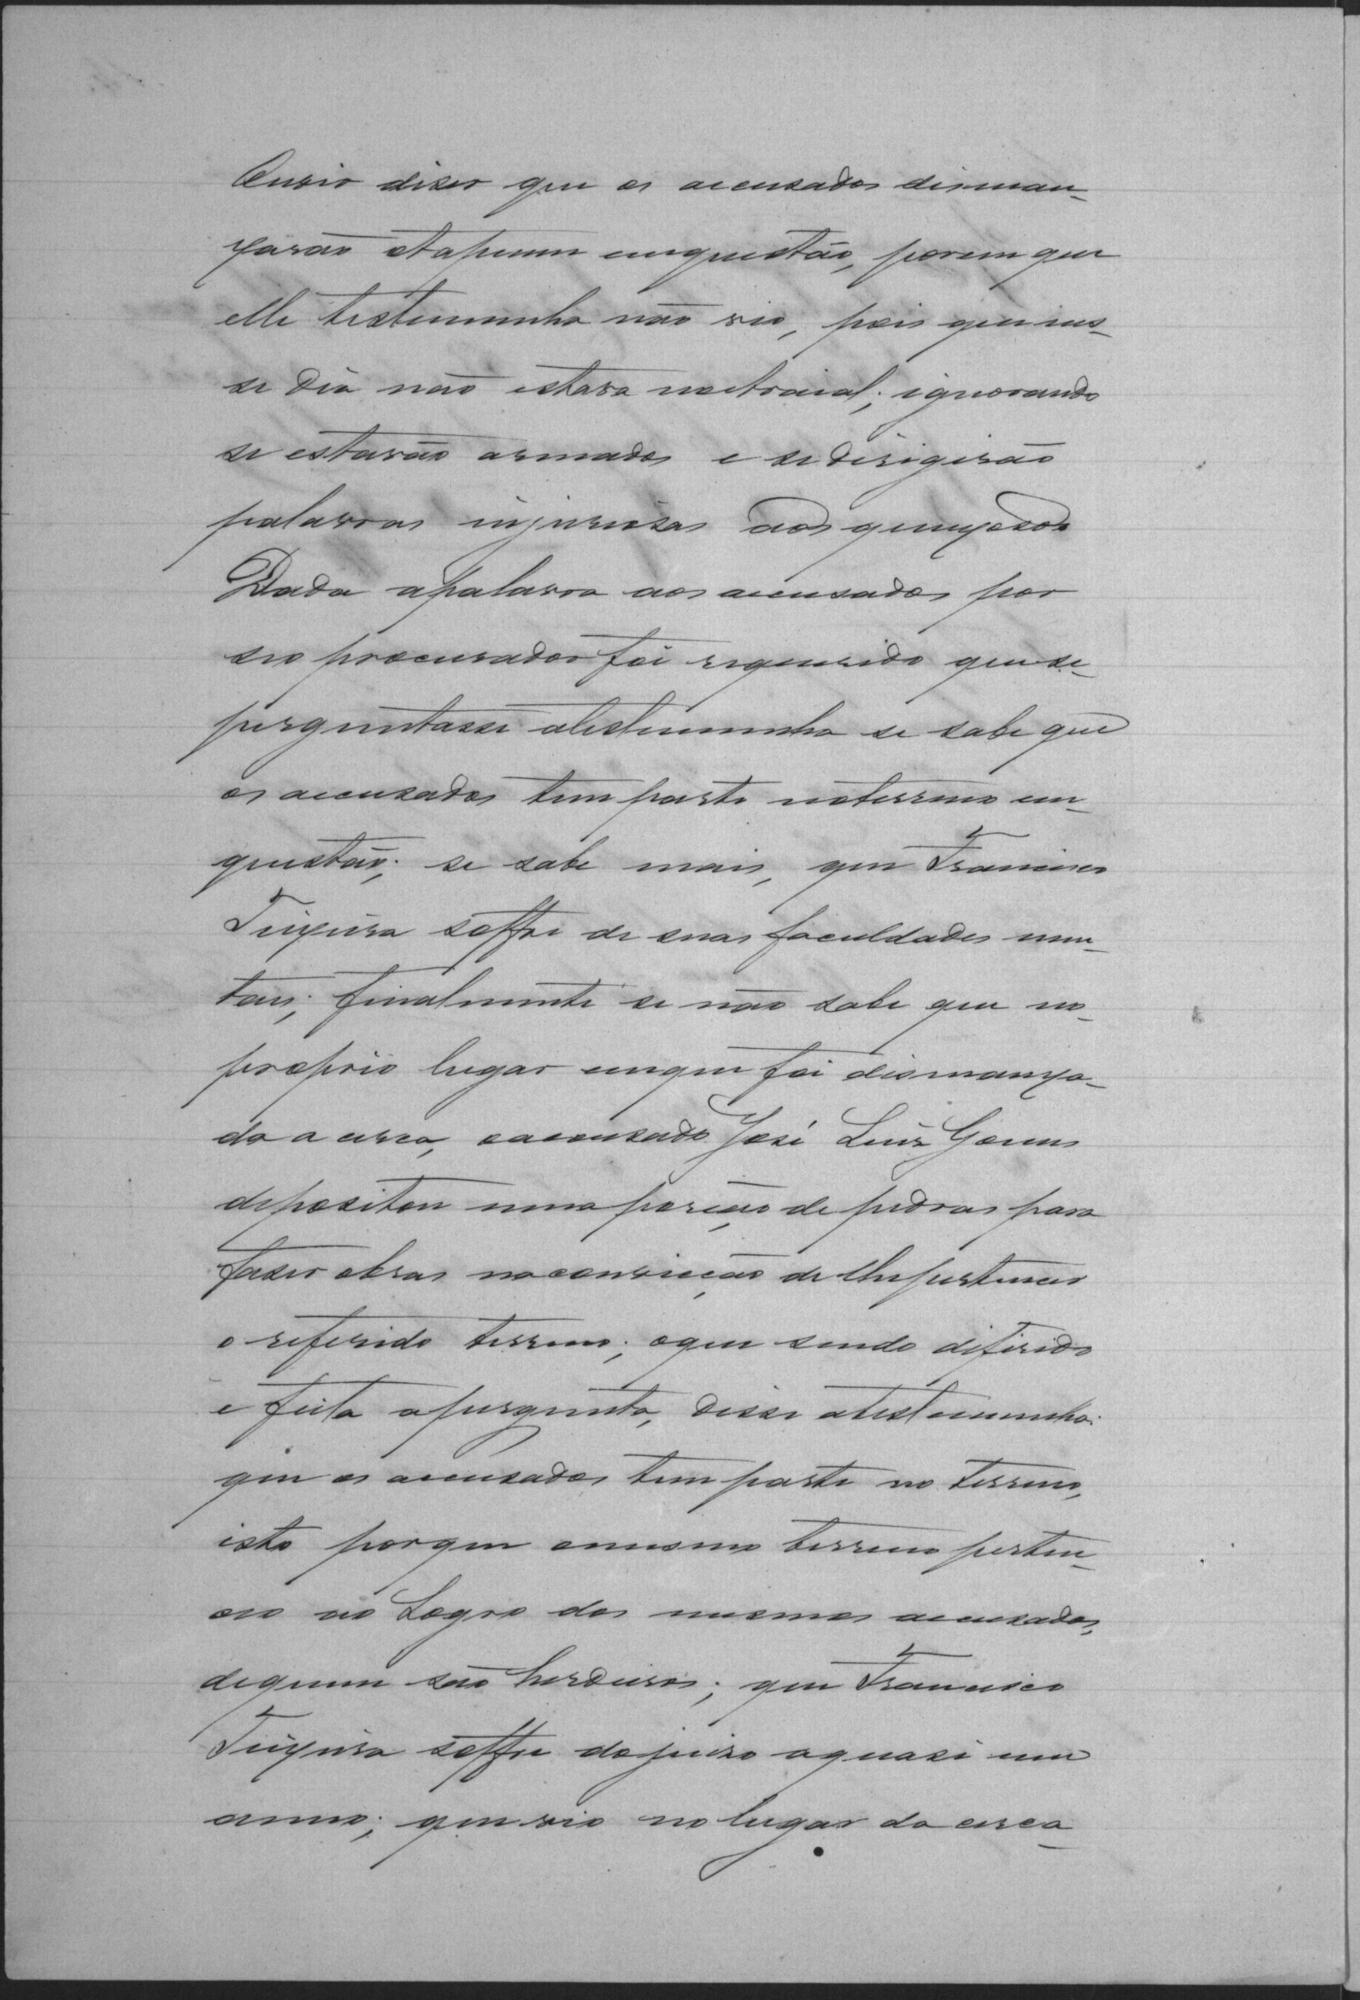 Ouvio diser que os accusados disman-
xarão otapume emquestão, porem que
elle testemunha não vio, pois que nes-
se dia não estava noarraial; ignorando
se estavão armados e se dirigirão
palavras injuriosas aos queixosos
Dada apalavra aos accusados por
seo procurador foi requerido que se-
perguntasse atestemunha se sabe que
os accusados tem parte noterreno em-
questão; se sabe mais, que Francisco
Teixeira soffre de suas faculdades men-
taes; finalmente se não sabe que no-
proprio lugar emque foi dismanxa-
da a cerca, oaccusado José Luiz Gomes
depositou uma porção de pedras para
faser obras naconvicção de lhepertencer
o referido terreno; oque sendo difirido
e feita apergunta, disse atestemunha:
que os accusados tem parte no terreno,
isto porque omesmo terreno perten-
ceo ao Sogro dos mesmos accusados,
dequem são herdeiros; que Francisco
Teixeira soffre dojuiso aquasi um
anno; que vio no lugar da cerca-